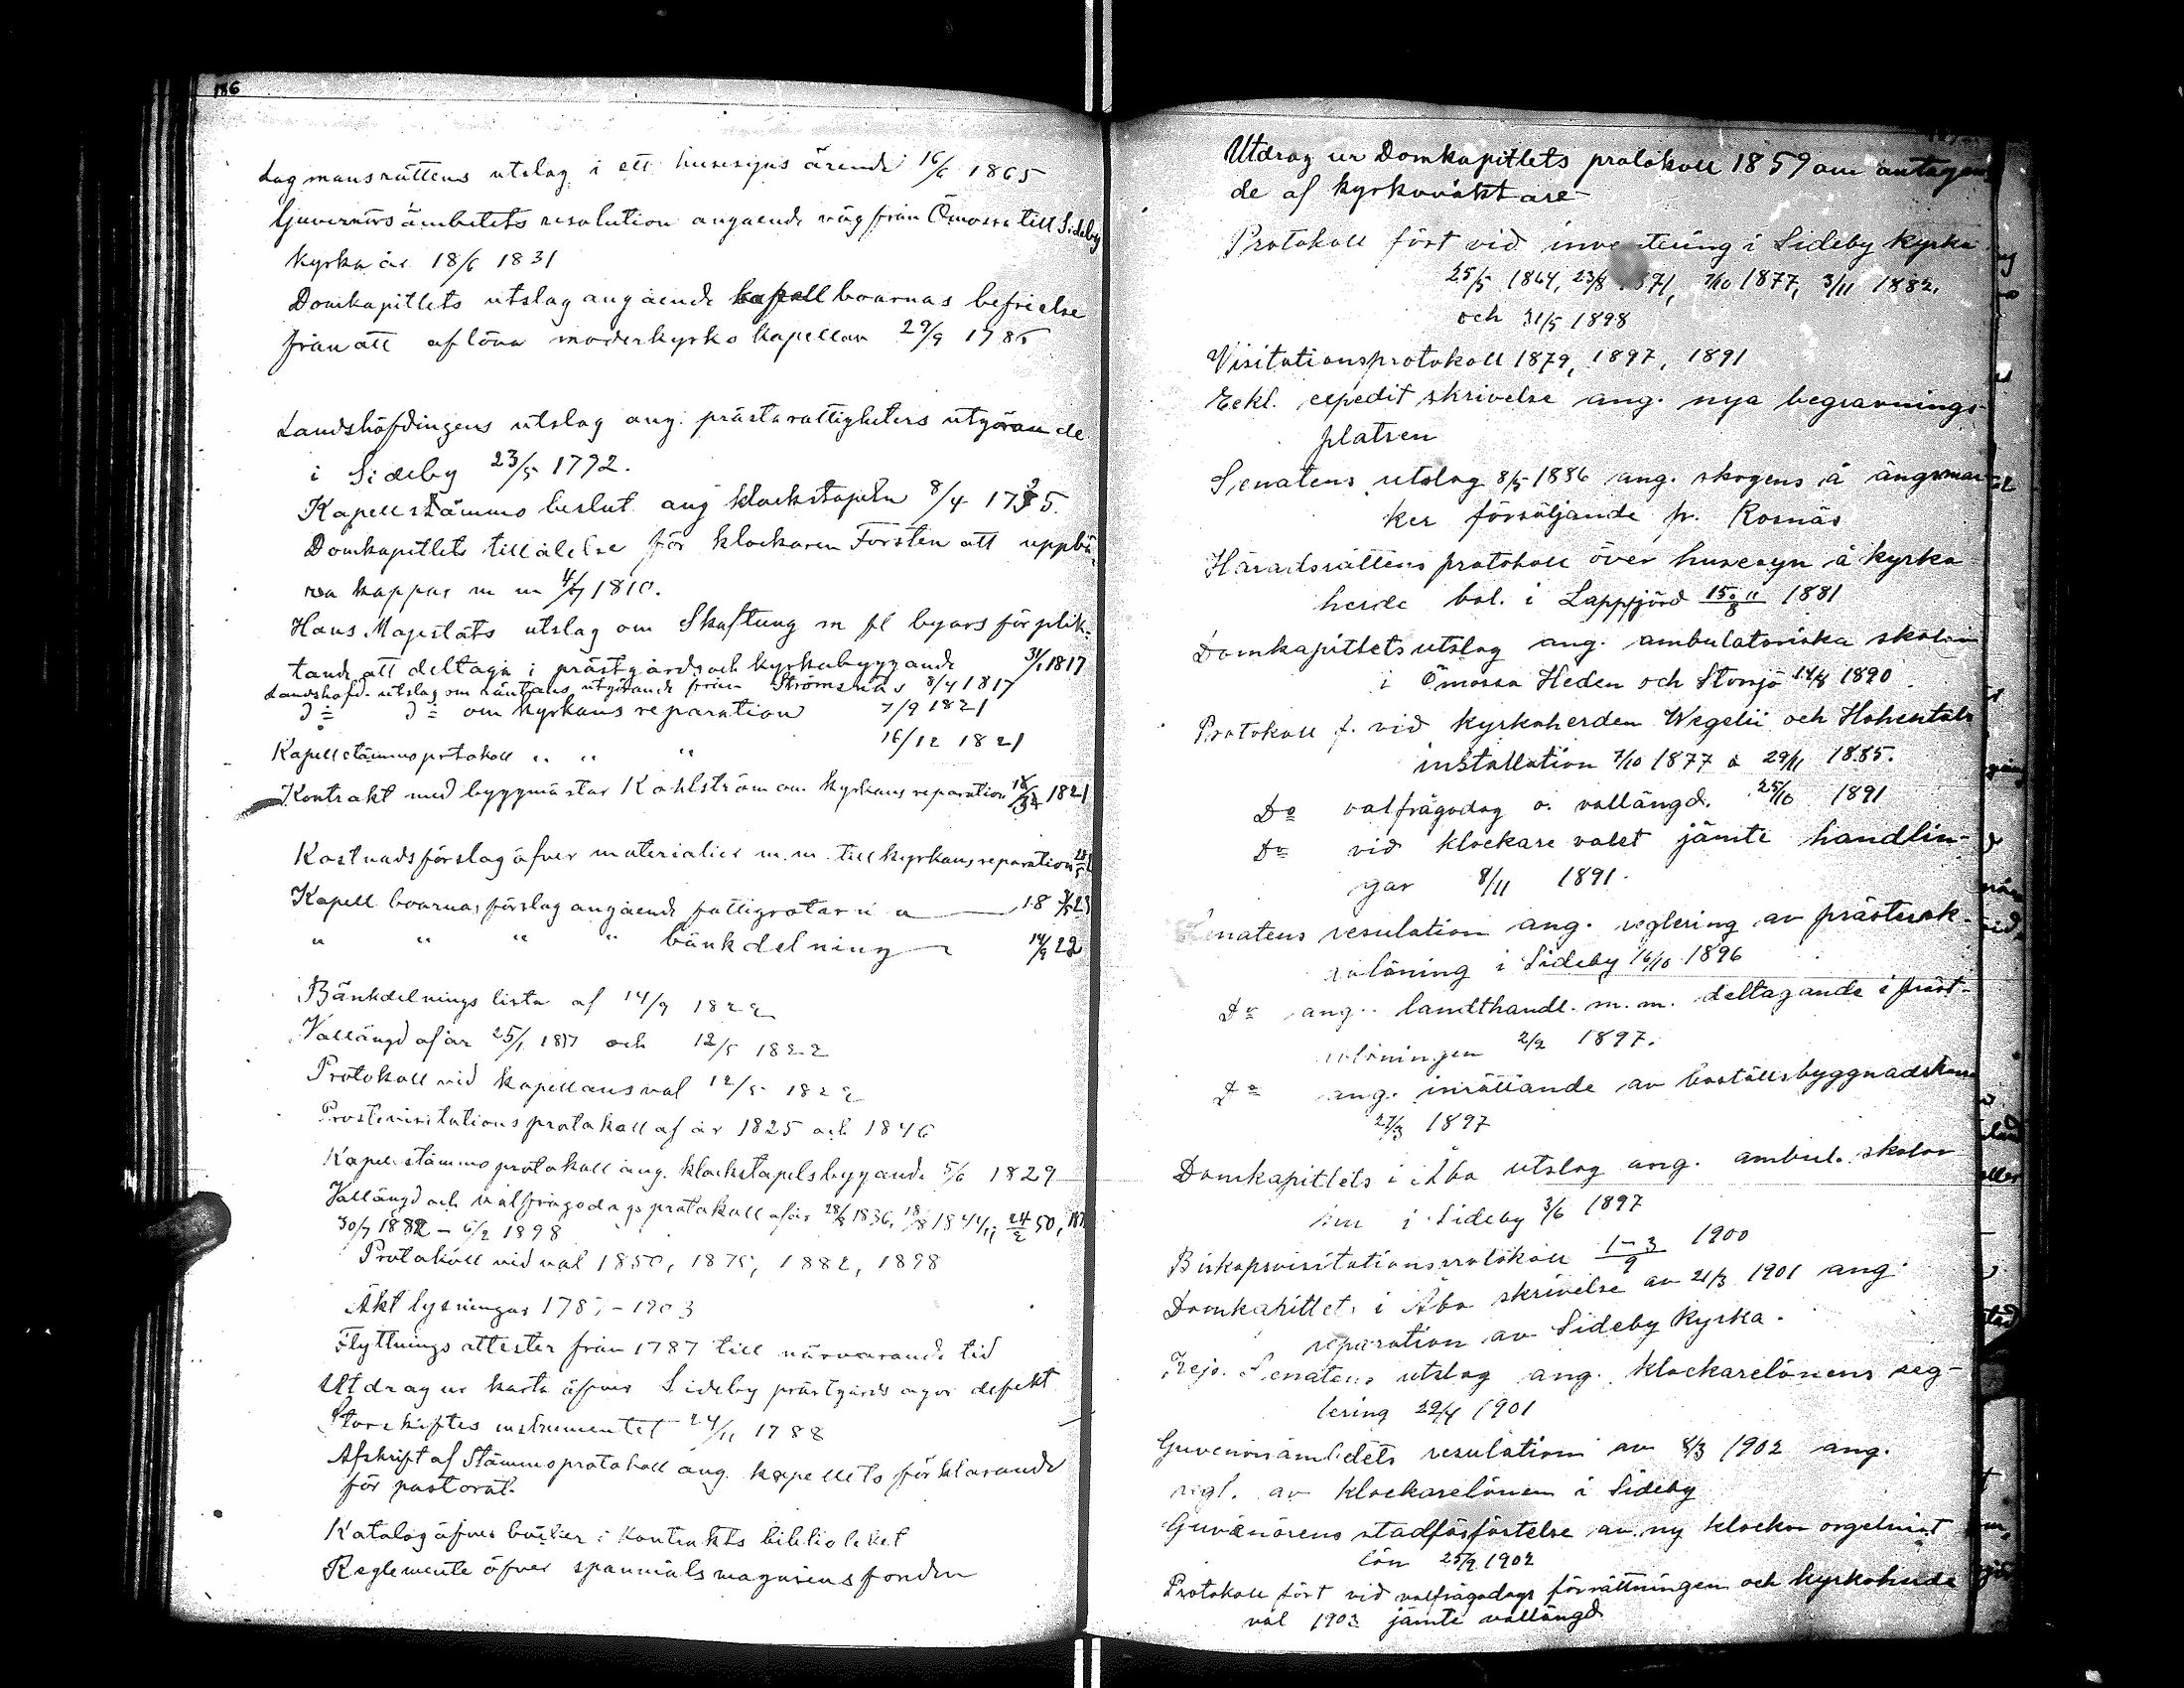 186
Lagmansrättens utslag i ett husesyns ärende 16/6 1865
Guvernörsämbetets resolution angående väg från Ömossa till Sideby
kyrka år 18/6 1831
Domkapitlets utslag angående kapellboarnas befrielse
från att aflöna moderkyrko kapellan 29/9 1786
Landshöfdingens utslag ang. prästarättigheters utgörande
i Sideby 23/5 1792.
Kapellstämmo beslut ang klockstapeln 8/4
Domkapitlets tillåtelse för klockaren Forstén att uppbä
ra kappar m m 1810.
Hans Majestäts utslag om Skaftung m fl byars förplik-
tande att deltaga i prästgårds och kyrkobyggande 31/1 1817
Landshöfd. utslag om räntans utgörande från Strömsnäs 8/4 1817
D:o D:o om kyrkans reparation 7/9 1821
Kapellstämmoprotokoll " " " 16/12 1821
Kontrakt med byggmästar Kahlström om kyrkans reparation 1821
Kostnadsförslag öfver materialier m.m. till kyrkans reparation
Kapellboarnas förslag angående fattigrotar
" " " " bänkdelning 14/9 22
Bänkdelnings lista af 14/9 1822
Vallängd af år 25/1 1817 och 12/5 1822
Protokoll vid kapellansval 12/5 1822
Prostevisitationsprotokoll af år 1825 och 1846
Kapellstämmoprotokoll ang. klockstapelsbyggande 5/6 1829
Vallängd och valfrågodagsprotokoll af år 28/8 1836, 18/8 1844,
30/7 1882 – 6/2 1898
Protokoll vid val 1850, 1875, 1882, 1898
Äkt lysningar 1787–1903
Flyttnings attester från 1787 till närvarande tid
Utdrag ur karta öfver Sideby prästgårds egor defekt
Storskiftes instrumentet 24/11 1788
Afskrift af Stämmoprotokoll ang. kapellets förklarande
för pastorat.
Katalog öfver böcker i kontrakts biblioteket
Reglemente öfver spannmåls magasinsfonden
Utdrag ur Domkapitlets protokoll 1859 om antagan
de af kyrkovaktare
Protokoll fört vid inventering i Sideby kyrka
25/5 1864, 23/8 1871, 7/10 1877, 3/11 1882,
och 31/5 1898
Visitationsprotokoll 1879, 1897, 1891
Eckl. expedit skrivelse ang. nya begravnings-
platsen
Senatens utslag 8/5 1886 ang. skogens å ängsmar
ker försäljande fr. Kosnäs
Häradsrättens protokoll över husesyn å kyrko
herde bol. i Lappfjärd 1881
Domkapitlets utslag ang. ambulatoriska skolan
i Ömossa Heden och Storsjö 14/8 1890
Protokoll f. vid kyrkoherden Wegelii och Hohentals
installation 7/10 1877 o 29/11 1885.
D:o valfrågodag o. vallängd. 25/10 1891
D:o vid klockare valet jämte handlin-
gar 8/11 1891.
Senatens resulation ang. reglering av prästerska-
avlöning i Sideby 16/10 1896
D:o ang. landthandl. m.m. deltagande i präst-
avlöningen 2/2 1897.
D:o ang. inrättande av boställsbyggnadskassa
27/3 1897
Domkapitlets i Åbo utslag ang. ambul. skolor
i Sideby 3/6 1897
Biskopsvisitationsprotokoll 1–3/9 1900
Domkapitlets i Åbo skrivelse av 21/3 1901 ang
reparation av Sideby Kyrka.
Kejs. Senatens utslag ang. klockarelönens reg-
lering 22/4 1901
Guvenörsämbetets resulation av 8/3 1902 ang.
regl. av klockarelönen i Sideby
Guvenörens stadfästelse av ny klockar orgelnist
lön 25/9 1902
Protokoll fört vid valfrågodags förrättningen och kyrkoherde
val 1903 jämte vallängd